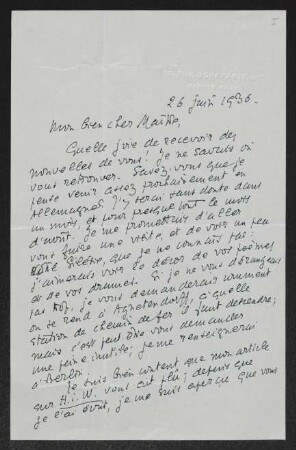 I
26 juin 1936.
Mon bien cher Maître,
Quelle joie de recevoir des
nouvelles de vous! Je ne savais où
vous retrouver. Savez-vous que je
pense venir assez prochainement en
Allemagne? J'y serai sans doute dans
un mois, et pour presque tout le mois
d'août. Je me promettais d'aller
vous faire une visite, et de voir un peu
que je ne connais pas:
j'aimerais voir le décor de vos poèmes
et de vos drames. Si je ne vous dérangeais
pas trop, je vous demanderais comment
on se rend à Agnetendorf, à quelle
station de chemin de fer il faut descendre;
mais c'est peut-être vous demander
une peine inutile; je me renseignerai
à Berlin.
Je suis bien content que mon article
sur H.i.W. vous ait plu; depuis que
je l'ai écrit, je me suis aperçu que vous